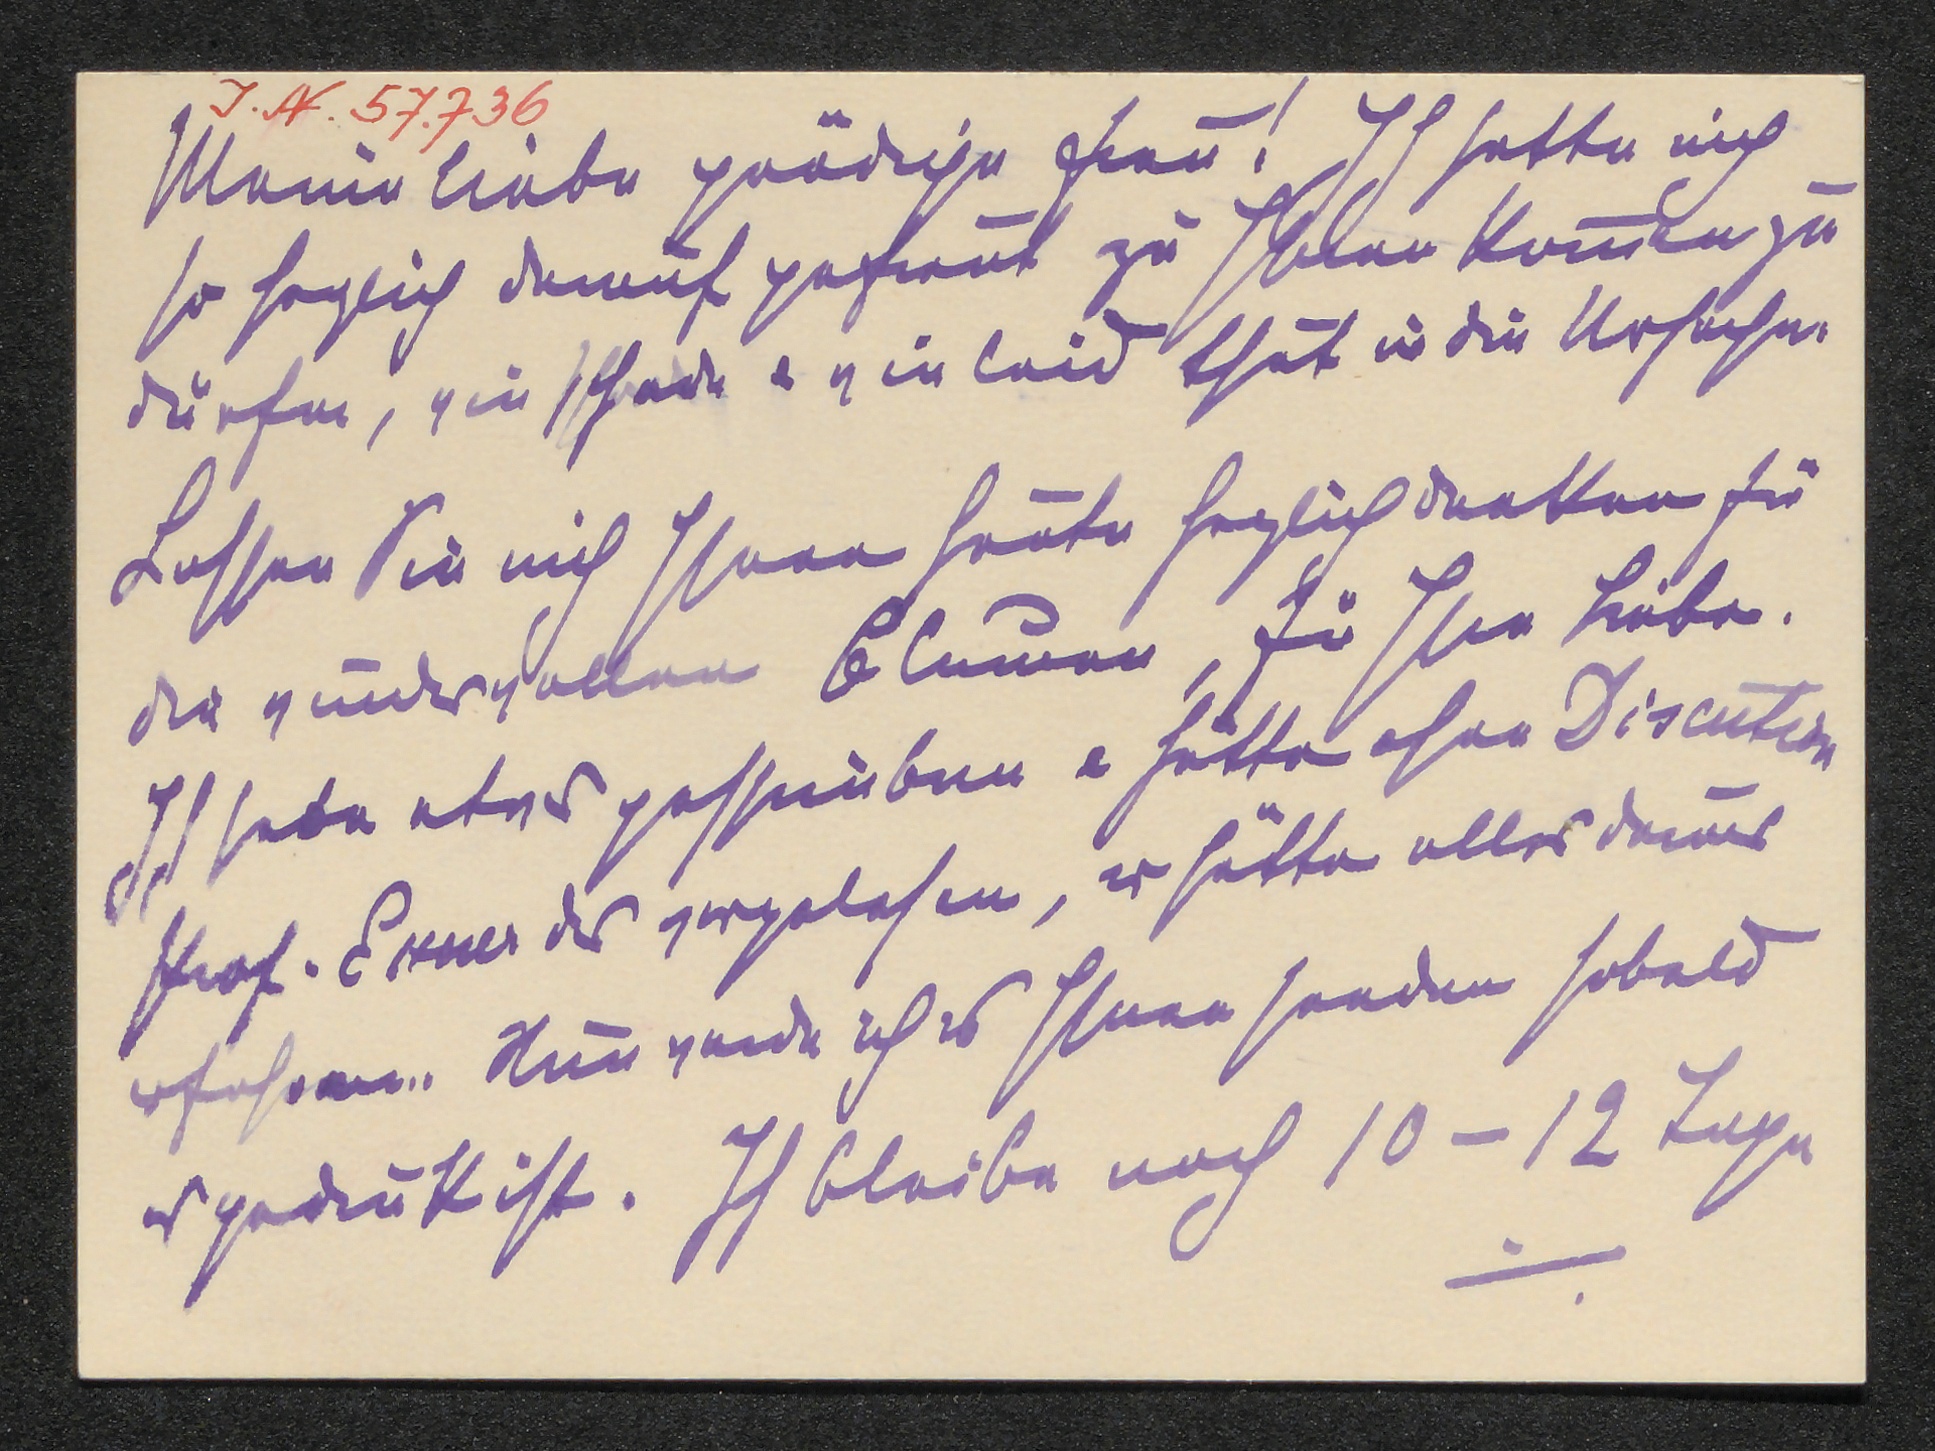 I. N. 57.736
Meine liebe gnädige Frau! Ich hatte mich
so herzlich darauf gefreut zu Ihnen kommen zu
dürfen, wie schade & wie leid thut in die Ursache.
Lassen Sie mich Ihnen heute herzlich danken für
die wundervollen Blumen, für Ihre Liebe.
Ich habe etwas geschrieben & hätte ohne Discution
Prof. Exner das vorgelesen, er hätte alles daraus
erfahren.. Nun werde ich es Ihnen senden sobald
es gedruckt ist. Ich bleibe noch 10 – 12 Tage